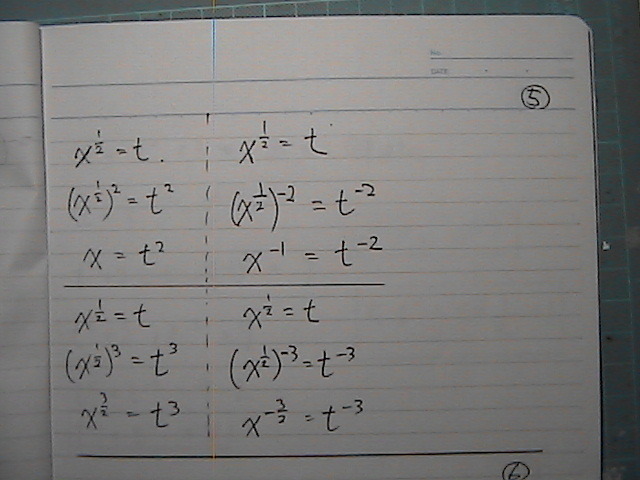 No.
DATE
⑤
x^{\frac{1}{2}} = t.
(x^{\frac{1}{2}})^2 = t^2
x = t^2
x^{\frac{1}{2}} = t
(x^{\frac{1}{2}})^{-2} = t^{-2}
x^{-1} = t^{-2}
x^{\frac{1}{2}} = t
(x^{\frac{1}{2}})^3 = t^3
x^{\frac{3}{2}} = t^3
x^{\frac{1}{2}} = t
(x^{\frac{1}{2}})^{-3} = t^{-3}
x^{-\frac{3}{2}} = t^{-3}
⑥